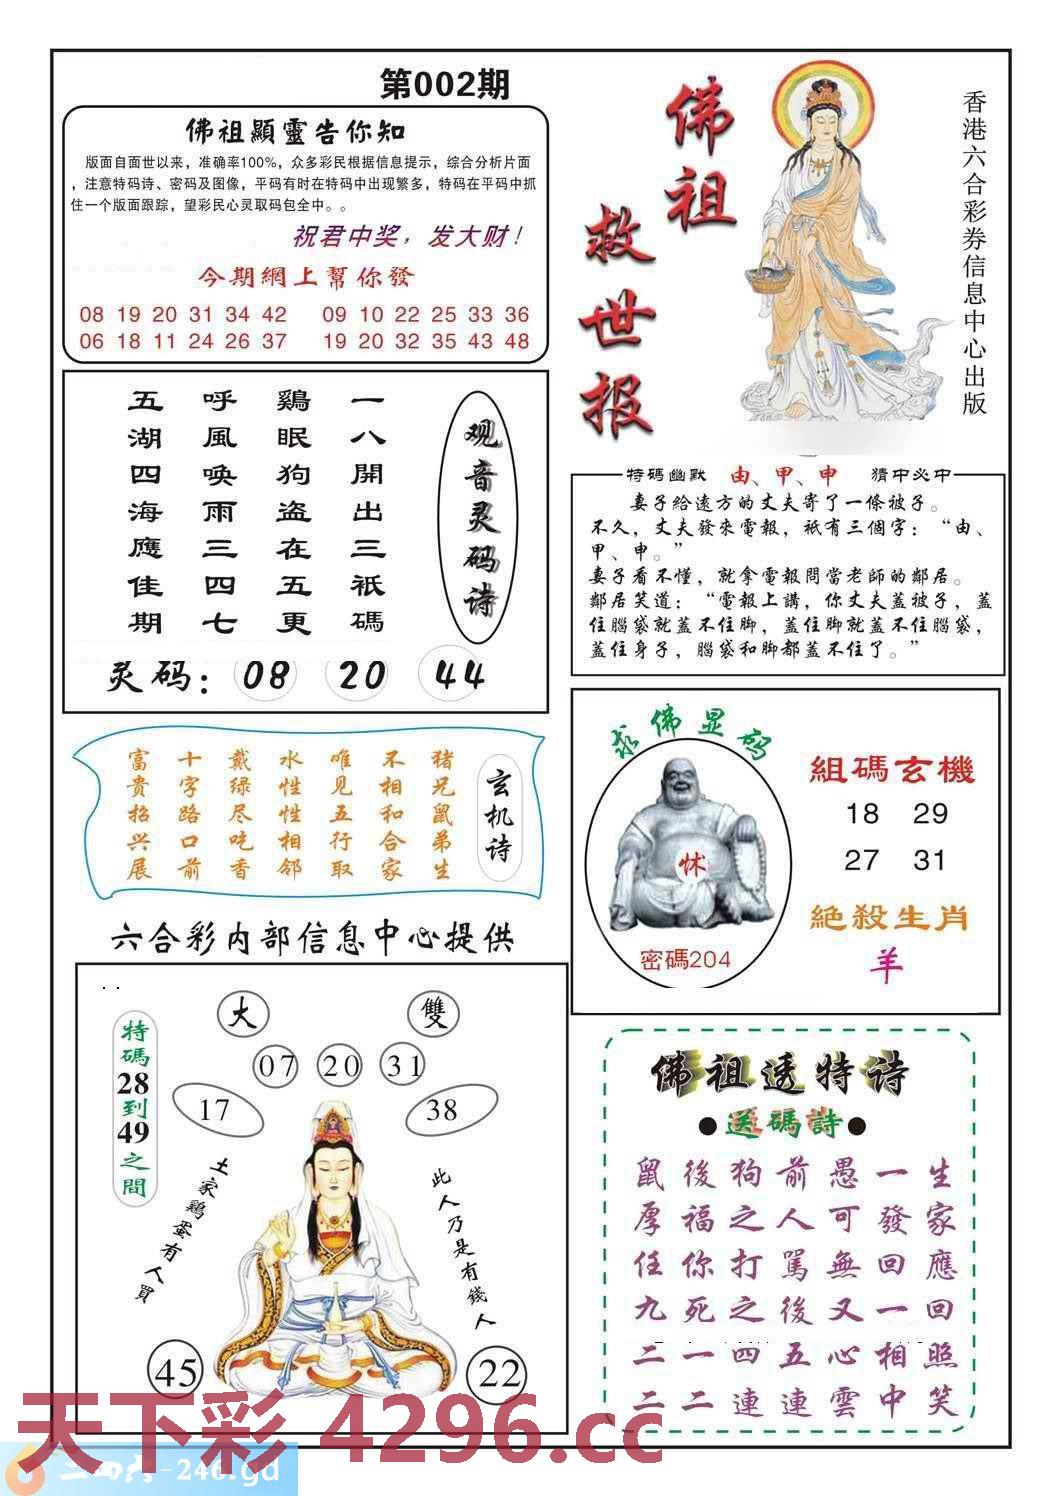 第002期
佛祖顯靈告你知
版面自面世以来，准确率100%，众多彩民根据信息提示，综合分析片面
，注意特码诗、密码及图像，平码有时在特码中出现繁多，特码在平码中抓
住一个版面跟踪，望彩民心灵取码包全中。。
祝君中奖，发大财！
今期網上幫你發
08 19 20 31 34 42 09 10 22 25 33 36
06 18 11 24 26 37 19 20 32 35 43 48
佛祖
救世报
香港六合彩券信息中心出版
观音灵码诗
一八開出三祇碼
鷄眠狗盗在五更
呼風唤雨三四七
五湖四海應佳期
灵码：08 20 44
特碼幽默 由、甲、申 猜中必中
妻子給遠方的丈夫寄了一條被子。
不久，丈夫發來電報，祇有三個字：“由、
甲、申。”
妻子看不懂，就拿電報問當老師的鄰居。
鄰居笑道：“電報上講，你丈夫蓋被子，蓋
住腦袋就蓋不住脚，蓋住脚就蓋不住腦袋，
蓋住身子，腦袋和脚都蓋不住了。”
玄机诗
猪兄鼠弟生
不相和合家
唯见五行取
水性性相邻
戴绿尽吃香
十字路口前
富贵招兴展
求佛显码
怵
密碼204
組碼玄機
18 29
27 31
絶殺生肖
羊
六合彩内部信息中心提供
特碼28到49之間
大 雙
07 20 31
17 38
土家鷄蛋有人買
此人乃是有錢人
45 22
佛祖透特诗
●送碼詩●
鼠後狗前愚一生
厚福之人可發家
任你打駡無回應
九死之後又一回
二一四五心相照
二二連連雲中笑
天下彩 4296.cc
二四六-246.gd